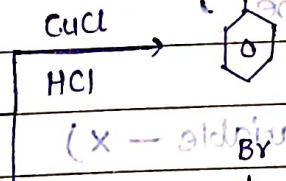 CuCl
HCl
Br